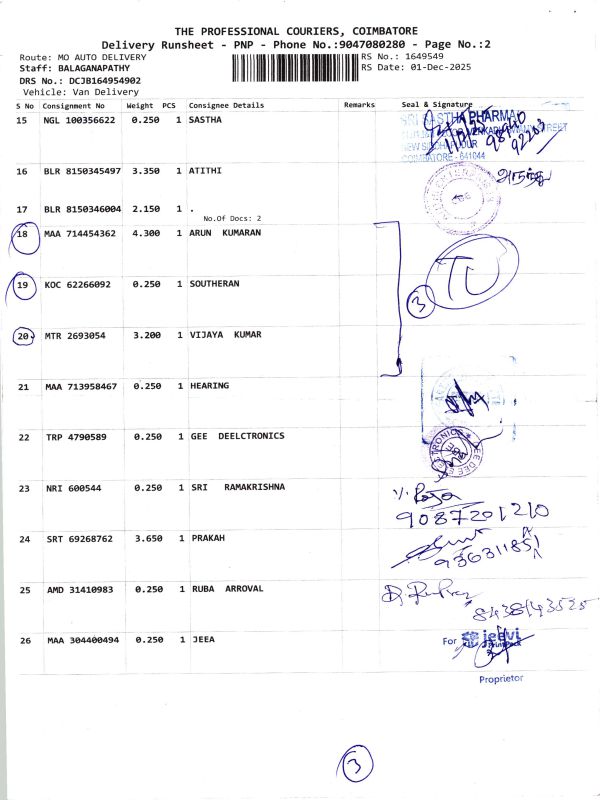 THE PROFESSIONAL COURIERS, COIMBATORE
Delivery Runsheet - PNP - Phone No.:9047080280 - Page No.:2
Route: MO AUTO DELIVERY
RS No.: 1649549
Staff: BALAGANAPATHY
RS Date: 01-Dec-2025
DRS No.: DCJB164954902
Vehicle: Van Delivery
S No Consignment No Weight PCS Consignee Details Remarks Seal & Signature
15 NGL 100356622 0.250 1 SASTHA
SRI SASTHA PHARMA
COIMBATORE - 641044
16 BLR 8150345497 3.350 1 ATITHI
17 BLR 8150346004 2.150 1 .
No.Of Docs: 2
18 MAA 714454362 4.300 1 ARUN KUMARAN
19 KOC 62266092 0.250 1 SOUTHERAN
3
20 MTR 2693054 3.200 1 VIJAYA KUMAR
21 MAA 713958467 0.250 1 HEARING
22 TRP 4790589 0.250 1 GEE DEELCTRONICS
23 NRI 600544 0.250 1 SRI RAMAKRISHNA
9087201210
24 SRT 69268762 3.650 1 PRAKAH
25 AMD 31410983 0.250 1 RUBA ARROVAL
8438143525
26 MAA 304400494 0.250 1 JEEA
For jeevi
Proprietor
3